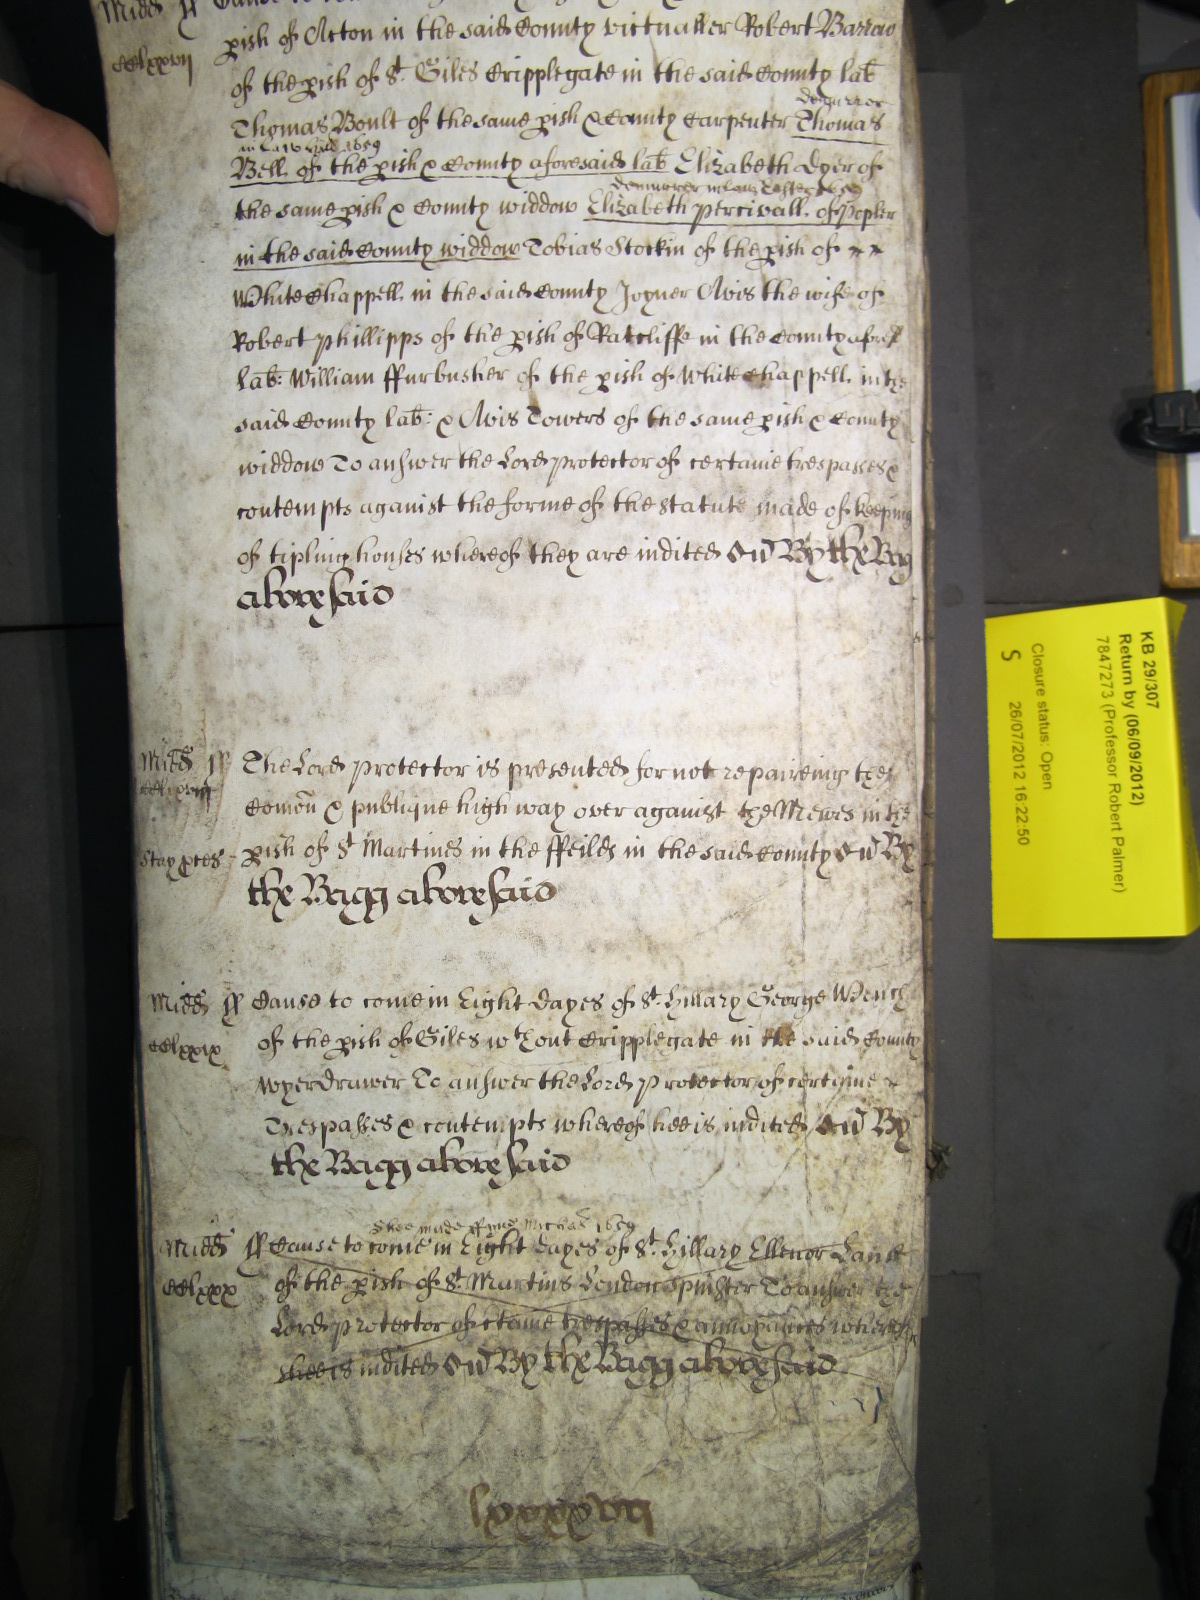 Midds ss Cause to
pish of Acton in the said County victualler Robert Barrow
cclxxvii
of the pish of St. Giles Cripplegate in the said County lab
demurrer
Thomas Boult of the same pish & County Carpenter Thomas
in law 1659
Bell of the pish & County aforesaid lab Elizabeth Dyer of
demurrer in law 1659
the same pish & County widdow Elizabeth Percivall of Popler
in the said County widdow Tobias Stockin of the pish of
White Chappell in the said County Joyner Avis the wife of
Robert Phillipps of the pish of Ratcliffe in the County afores
lab: William ffurbusher of the pish of White Chappell in the
said County lab: & Avis Towers of the same pish & County
widdow To answer the Lord Protector of certaine trespasses &
contempts against the forme of the statute made of keeping
of tipling houses whereof they are indited By the Bag
abovesaid
Midds ss The Lord Protector is presented for not repaireing the
cclxxviii
Comon & publique high way over against the Mewes in the
Stay pces - pish of St Martines in the ffeilds in the said County By
the Bagg abovesaid
Midds ss Cause to come in Eight dayes of St. Hillary George Wench
cclxxix
of the pish of Giles wthout Cripplegate in the said County
Wyerdrawer To answer the Lord Protector of certaine
Trespasses & contempts whereof hee is indited By
the Bagg abovesaid
Shee made ffyne Michas 1659
Midds ss Cause to come in Eight dayes of St. Hillary Ellenor
cclxxx
of the pish of St. Martins London Spinster To answer the
Lord Protector of ctaine trespasses & annoyances whereof
shee is indited By the Bagg abovesaid
lxxxxvii
KB 29/307
Return by (06/09/2012)
7847273 (Professor Robert Palmer)
Closure status: Open
S 26/07/2012 16:22:50